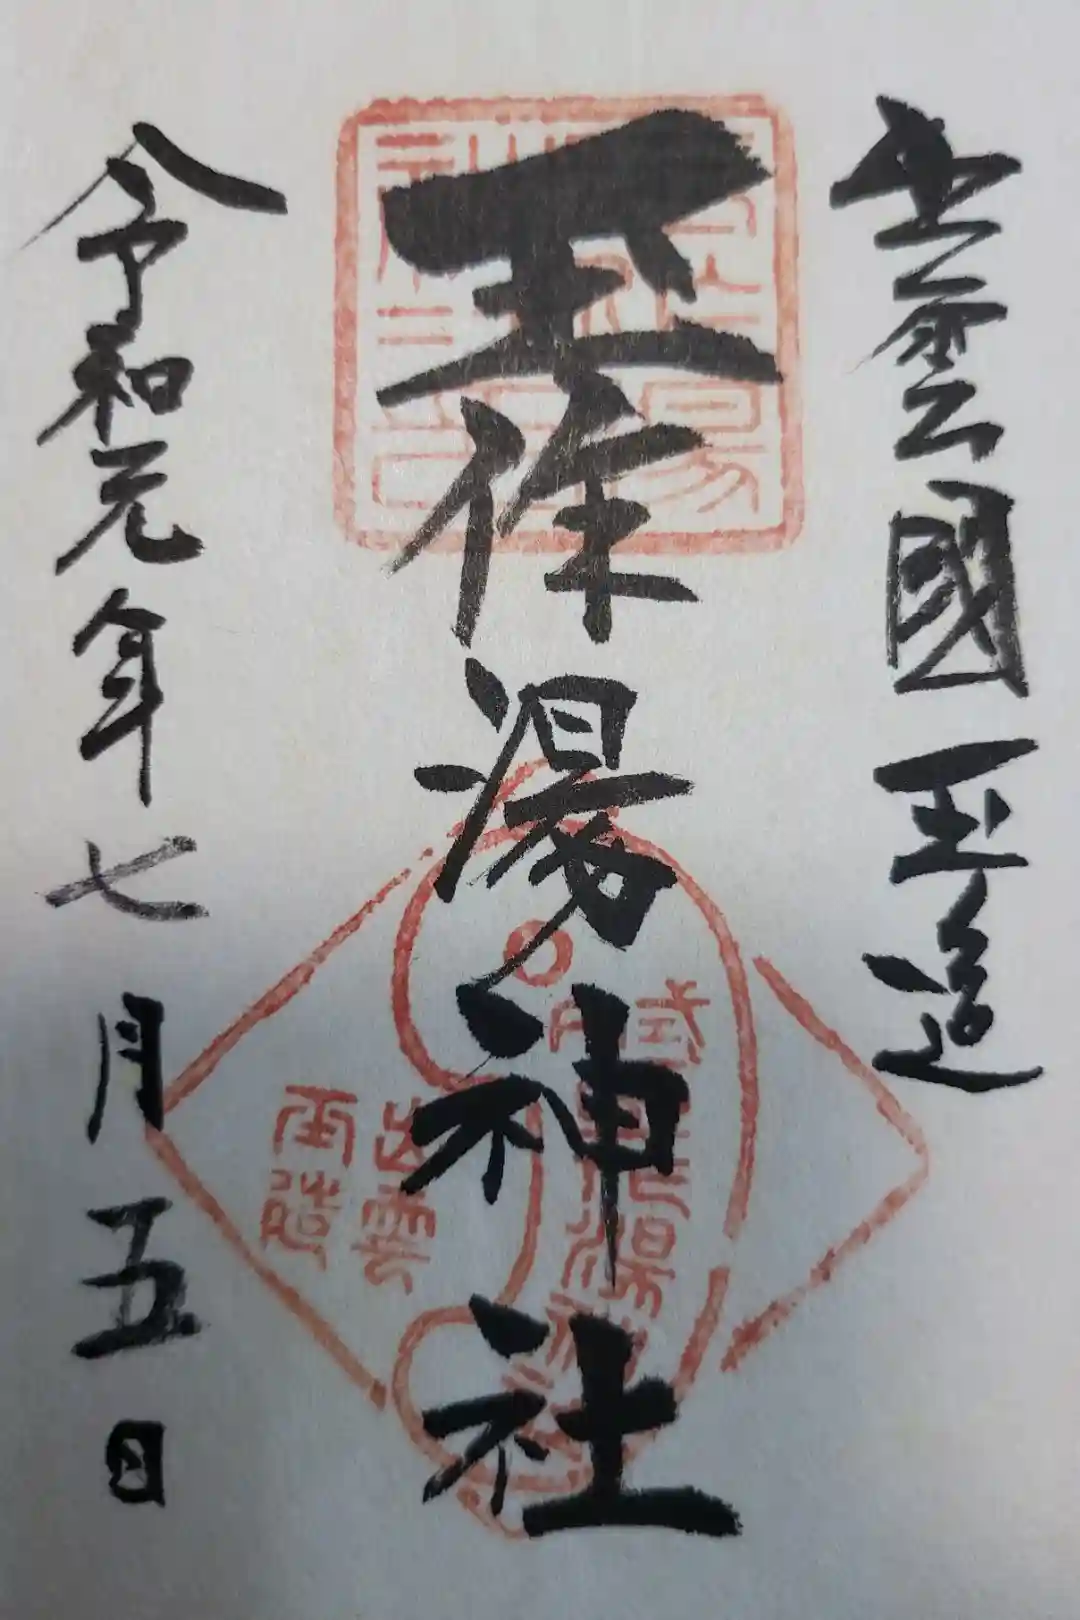 出雲國玉造
玉作湯神社
令和元年七月五日
出雲
玉造
式内
玉作湯
神社